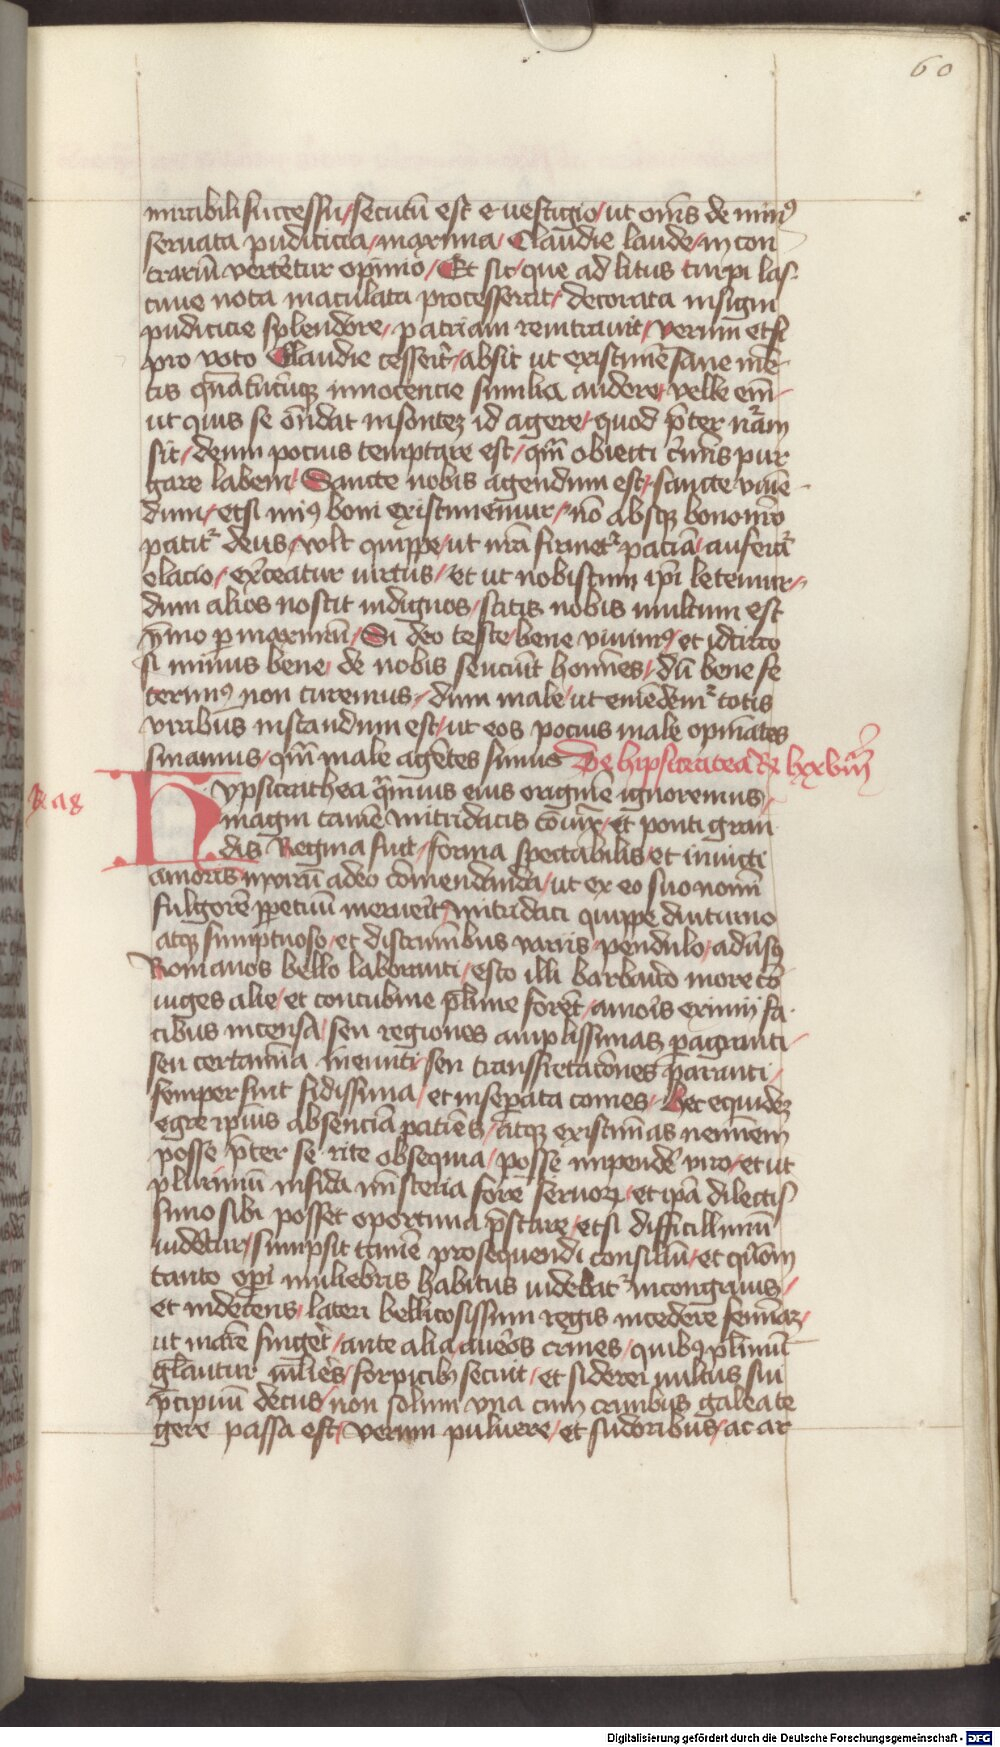 60
mirabili successu / secutū est e uestigio / ut om̄is de minꝰ
seruata pudicicia / maxima / Claudie laude / in con
trariū verteretur opinio / Et sic / que ad litus turpi las-
ciuie nota maculata processerat / decorata insigni
pudicicie splendore / patriam reintrauit / verum etsi
pro voto Claudie cesserit / absit ut existimē sane mē-
tis innocencie similia audere / velle em̄
ut quis se on̄dat insontez id agere / quod p̄ter nr̄am
sit / deum pocius temptare est / qm̄ obiecti crīis pur
gare labem / Sancte nobis agendum est / sancte viuē-
dum / etsi minꝰ boni existimemur / nō absqꝫ bono nr̄o
patitꝛ deus / volt quippe / ut nr̄a firmetꝛ paciēcia / auferatꝛ
elacio / exerceatur uirtus / et ut nobiscum ip̄i letemur /
dum alios noscit indignos / satis nobis multum est
ymo permaximū / Si deo teste / bene viuimꝰ / et idcirco
si minus bene / de nobis senciūt homīes / dū bene se
cerimꝰ non curemus / dum male / ut emēdemꝛ totis
viribus instandum est / ut eos pocius male opinātes
sinamus / qm̄ male agētes simus De hipsicratea R lxxvi
R ag
Hypsicrathea q̄muis eius originē ignoremus /
magni tamē mitridatis cōiūx / et ponti gran
dis Regina fuit / forma spectabilis / et inuicti
amoris in virū adeo comendanda / ut ex eo suo nomī
fulgorē ppetuū meruerit / mitridati quippe diuturno
atqꝫ sumptuoso / et discrimībus variis / pendulo / aduersꝰ
Romanos bello laboranti / esto illi barbarico more cō
iuges alie / et concubine plurime forēt / amoris eximij fa-
cibus incensa / seu regiones amplissimas pagranti /
seu certamina ineunti / seu transfretacōnes paranti /
semper fuit fidissima / et inseparata comes / Hec equidez
egre ipius absenciā patiens / atqꝫ existimās neminem
posse p̄ter se rite obsequia / posse impendē viro / et ut
plurimū infida ministeria fore seruoꝝ / et ip̄a dilectis
simo sibi posset oportuna p̄stare / etsi difficillimū
uideretur / sumpsit tamē prosequendi consiliū / et qm̄
tanto operi muliebris habitus uidebatꝛ incongruus /
et indecens / lateri bellicosissimi regis incedere feminaz /
ut marē fingeret / ante alia aureos crines / quibꝰ plimū
gl̄antur mulieres / forpicibꝰ secuit / et siderei uultus sui
p̄cipuū decus / non solum vna cum crinibus galea te
gere passa est / verum puluere / et sudoribus / ac ar
Digitalisierung gefördert durch die Deutsche Forschungsgemeinschaft - DFG